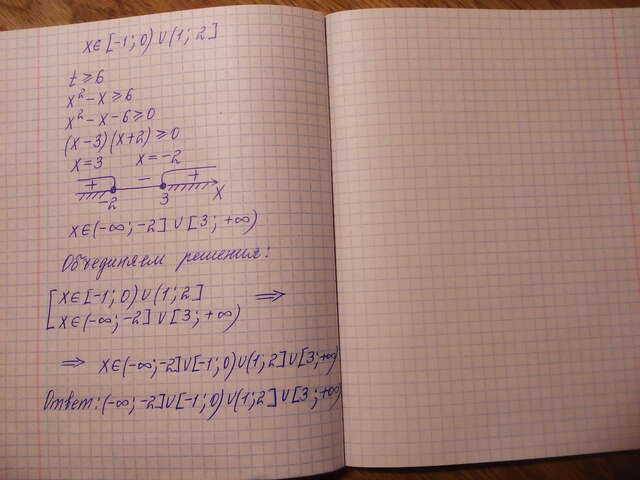 x∈[-1;0)∪(1;2]
t⩾6
x²-x⩾6
x²-x-6⩾0
(x-3)(x+2)⩾0
x=3 x=-2
+ - +
-2 3 x
x∈(-∞;-2]∪[3;+∞)
Объединяем решения:
[x∈[-1;0)∪(1;2] ⇒
x∈(-∞;-2]∪[3;+∞)
⇒ x∈(-∞;-2]∪[-1;0)∪(1;2]∪[3;+∞)
Ответ: (-∞;-2]∪[-1;0)∪(1;2]∪[3;+∞)